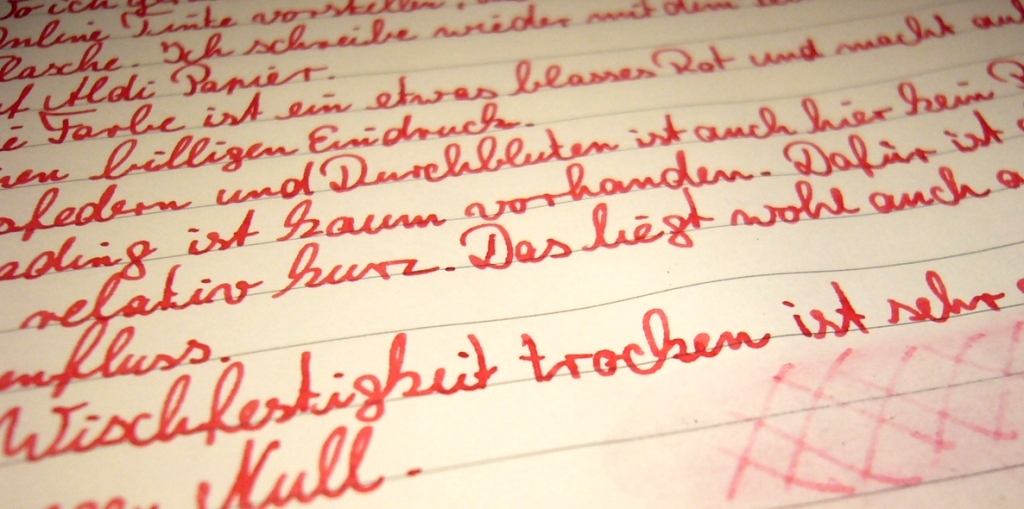 So ich
Online Tinte vorstellen
lasche. Ich schreibe wieder mit dem
uf Aldi Papier.
e Farbe ist ein etwas blasses Rot und macht auf
nen billigen Eindruck.
sfedern und Durchbluten ist auch hier kein
ading ist kaum vorhanden. Dafür ist
relativ kurz. Das liegt wohl auch a
enfluss.
Wischfestigkeit trocken ist sehr
Null.